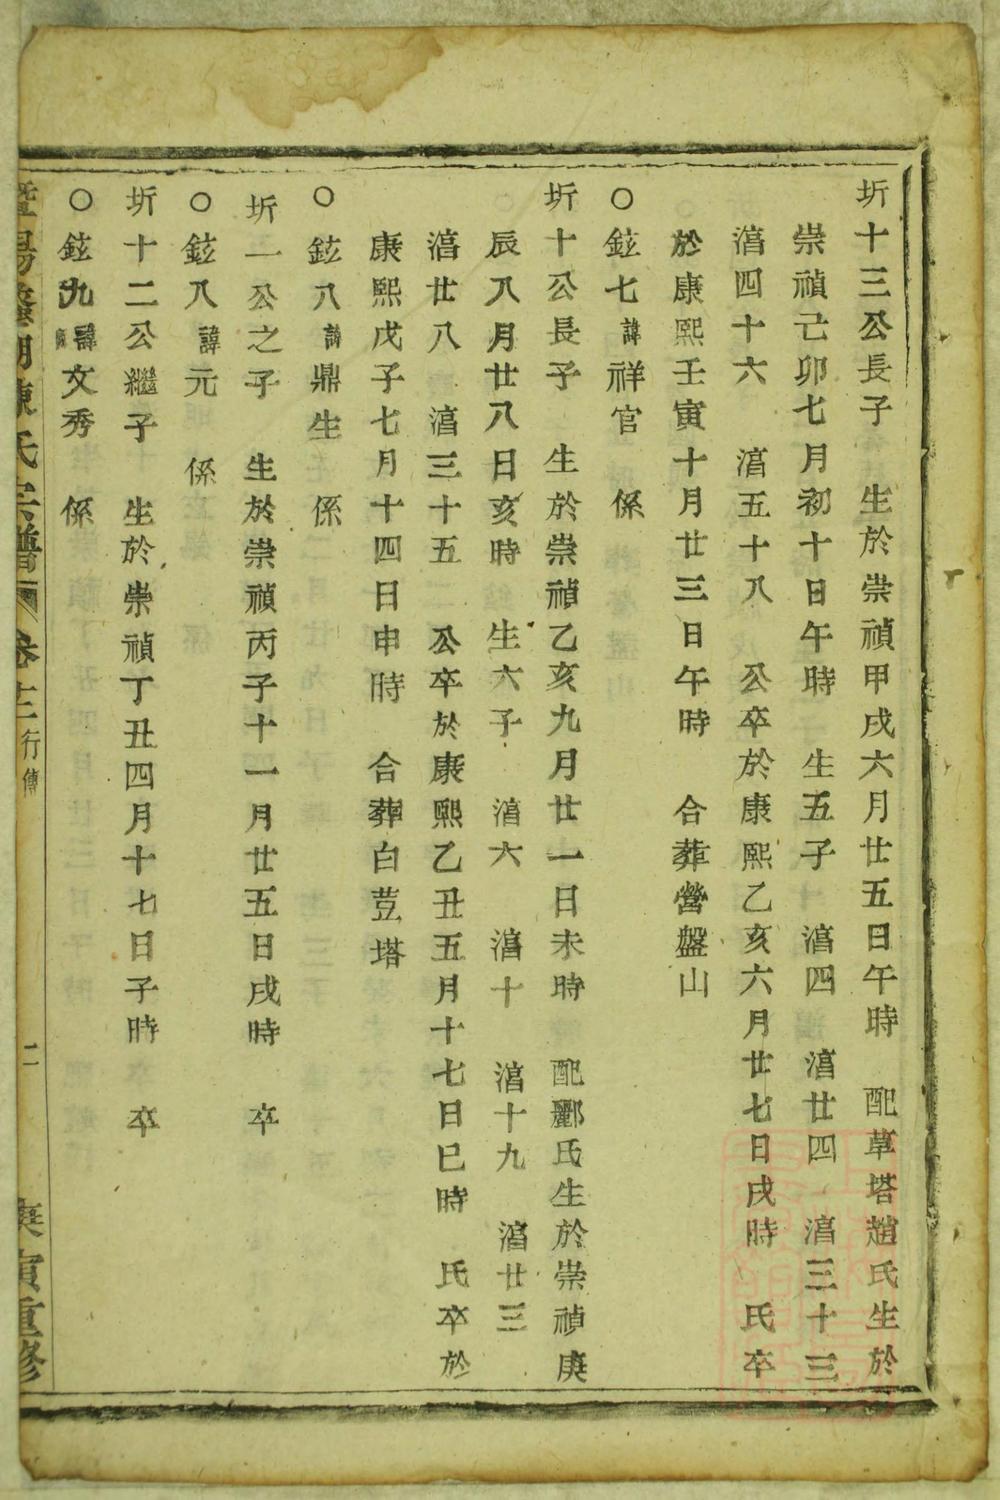 圻十三公長子　生於崇禎甲戌六月廿五日午時　配草塔趙氏生於
崇禎己卯七月初十日午時　生五子　湻四　湻廿四　湻三十三
湻四十六　湻五十八　公卒於康熙乙亥六月廿七日戌時　氏卒
於康熙壬寅十月廿三日午時　合葬營盤山
○鉉七諱祥官　係
圻十公長子　生於崇禎乙亥九月廿一日未時　配酈氏生於崇禎庚
辰八月廿八日亥時　生六子　湻六　湻十　湻十九　湻廿三
湻廿八　湻三十五　公卒於康熙乙丑五月十七日巳時　氏卒於
康熙戊子七月十四日申時　合葬白荳塔
○鉉八諱鼎生　係
圻一公之子　生於崇禎丙子十一月廿五日戌時　卒
○鉉八諱元　係
圻十二公繼子　生於崇禎丁丑四月十七日子時　卒
○鉉九諱文秀　係
陳氏宗譜　卷十二　行傳　二　庚寅重修